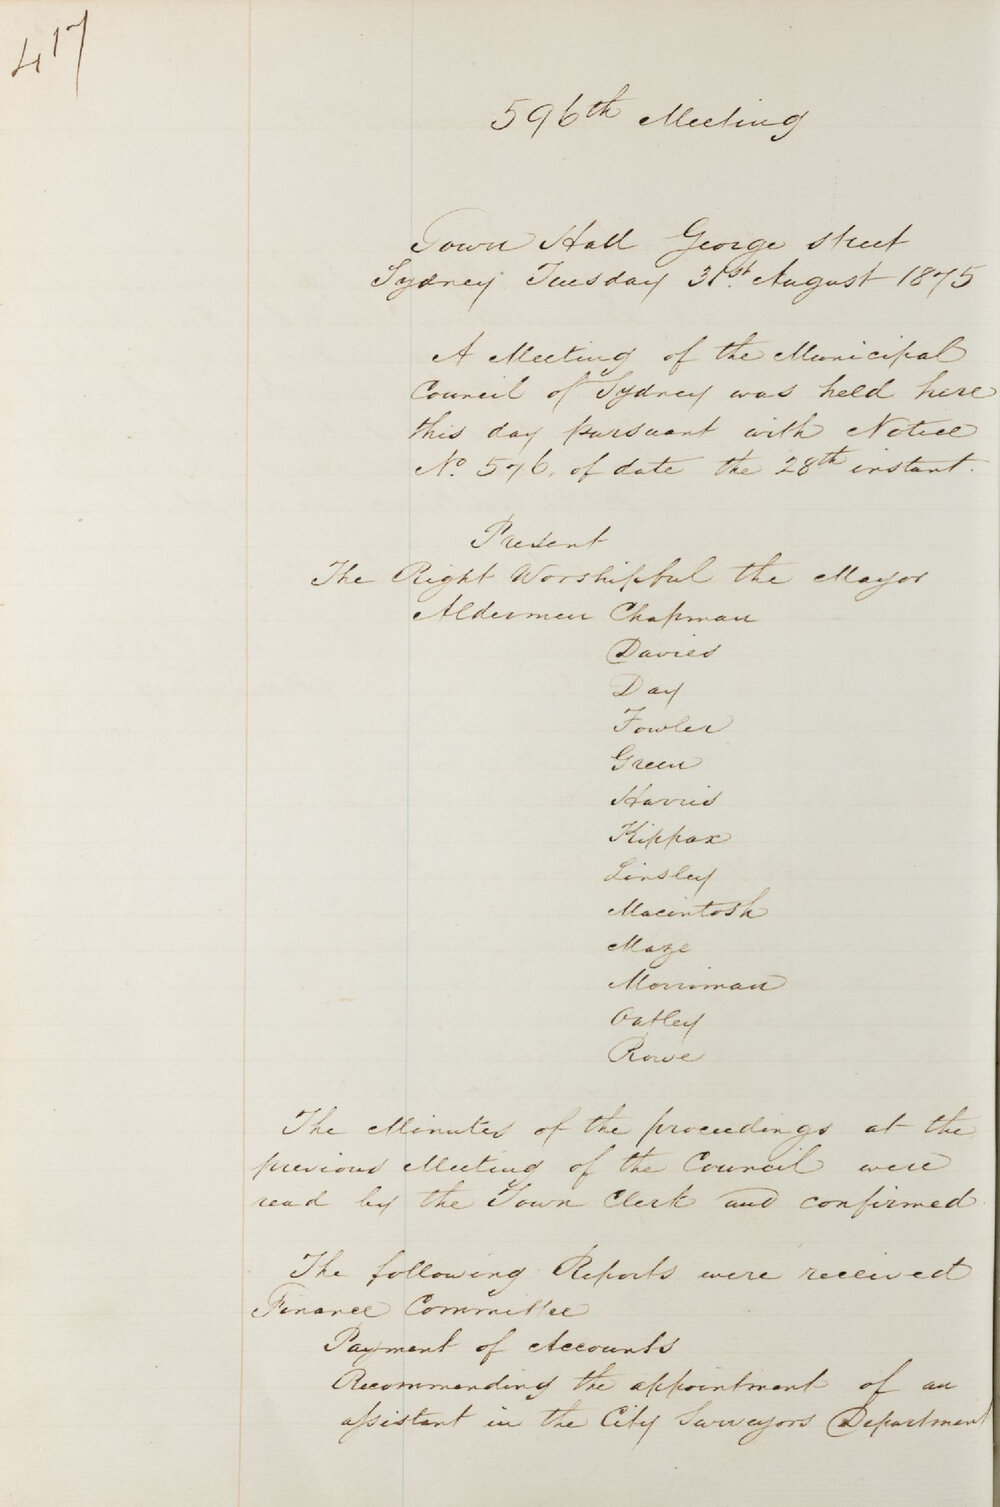 417
596th Meeting
Town Hall George street
Sydney Tuesday 31st August 1875
A Meeting of the Municipal
Council of Sydney was held here
this day pursuant with Notice
No. 576. of date the 28th instant.
Present
The Right Worshipful the Mayor
Aldermen Chapman
Davies
Day
Fowler
Green
Harris
Kippax
Linsley
Macintosh
Maze
Merriman
Oatley
Rowe
The Minutes of the proceedings at the
previous Meeting of the Council were
read by the Town Clerk and confirmed
The following Reports were received
Finance Committee
Payment of Accounts
Recommending the appointment of an
assistant in the City Surveyors Department